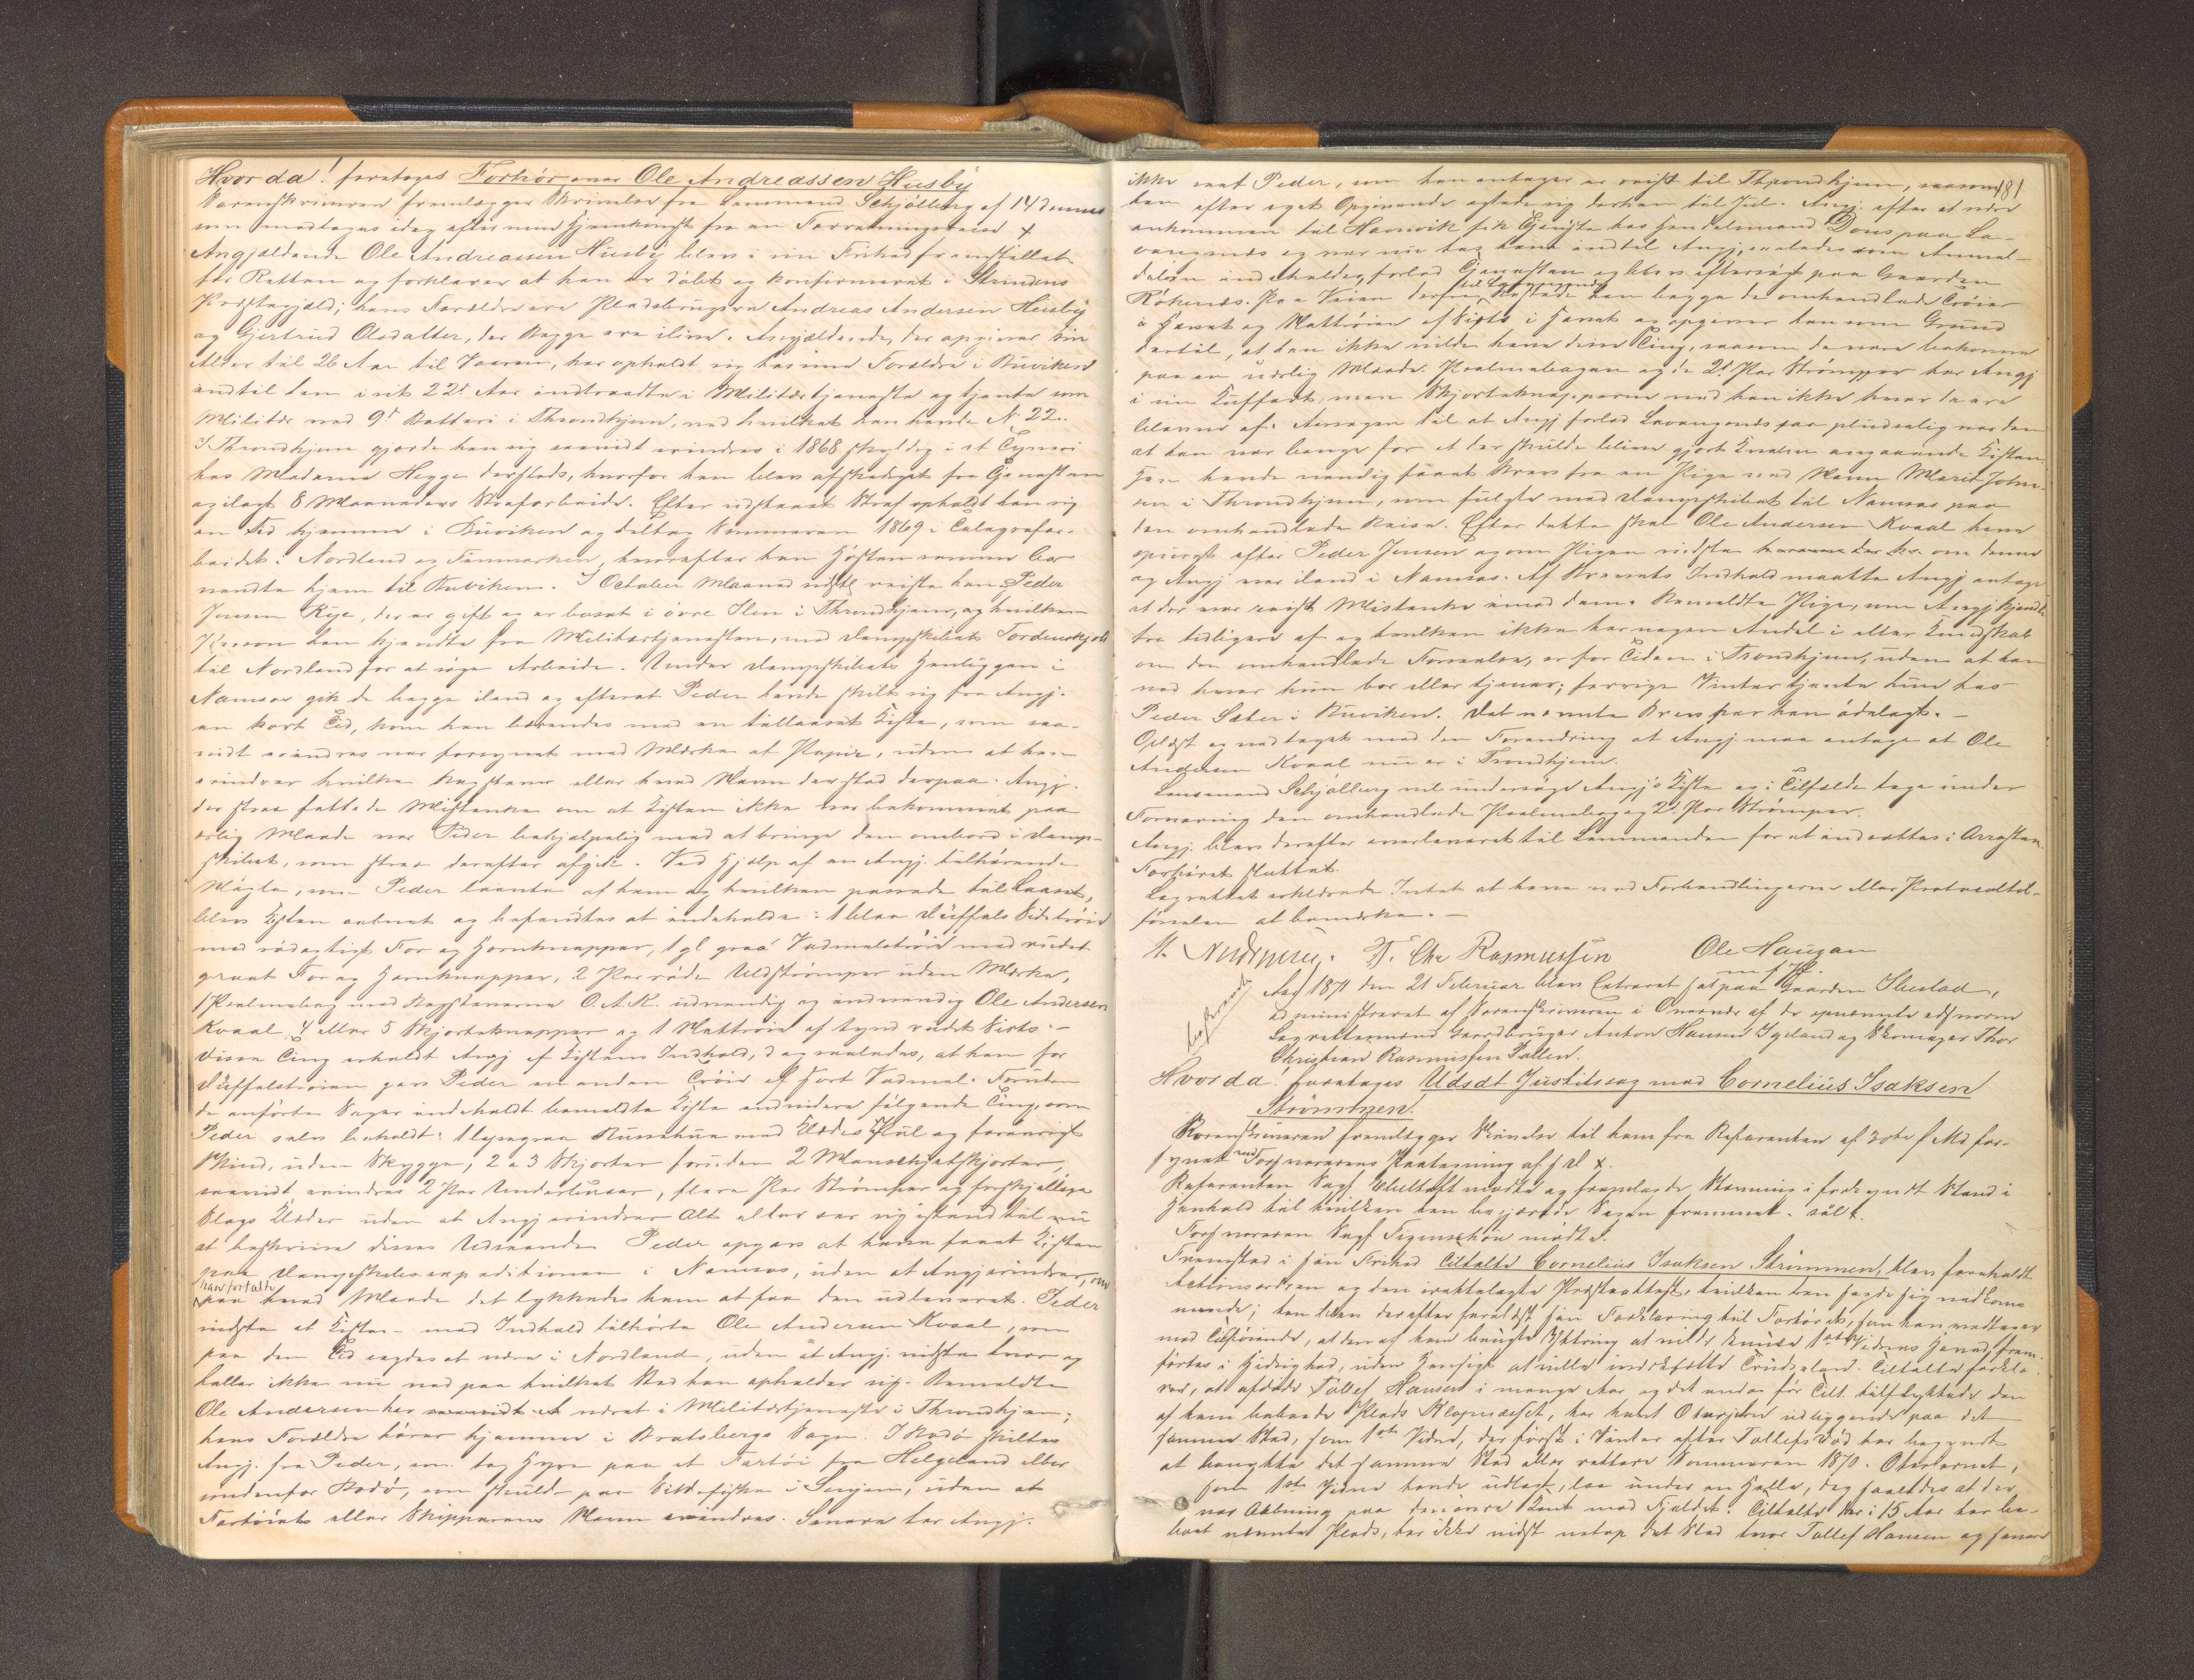 Hvorda! foretoges Forhør over Ole Andreassen Husby
Sorenskriveren fremlægger Skrivelse fra Lensmand Schjölberg af 14 dennes
som modtoges idag efter min Hjemkomst fra en Forretningsreise X
Angjældende Ole Andreassen Husby blev i sin Frihed fremstillet
for Retten og forklarer at han er døbt og konfirmeret i Strindens
Præstegjæld; hans Forældre ere Pladsbrugere Andreas Andersen Husby
og Gjertrud Olsdatter, der Begge ere ilive. Angjældende, der opgiver sin
Alder til 26 Aar til Vaaren, har opholdt sig hos sine Forældre i Buviken
indtil han i sit 22de Aar indtraadte i Militærtjeneste og tjente som
Militær ved 9de Batteri i Throndhjem, ved hvilket han havde No 22.
I Throndhjem gjorde han sig saavidt erindres i 1868 skyldig i et Tyveri
hos Madame Hegge dersteds, hvorfor han blev afskediget fra Tjenesten
og ilagt 8 Maaneders Strafarbeide. Efter udstaaet Straf opholdt han sig
en Tid hjemme i Buviken og deltog Sommeren 1869 i Telegrafar-
beidet i Nordland og Finmarken, hvorefter han Høsten samme Aar
vendte hjem til Buviken. I October Maaned sidstl reiste han Peder
Jensen Rye, der er gift og er bosat i øvre Ilen i Throndhjem, og hvilken
Person han kjendte fra Militærtjenesten, med Dampskibet Tordenskjold
til Nordland for at søge Arbeide. Under Dampskibets Henliggen i
Namsos gik de begge iland og efterat Peder havde skilt sig fra Angj.
en kort Tid, kom han bærendes med en tillaaset Kiste, som saa-
vidt erindres var forsynet med Mærke af Papir, uden at han
erindrer hvilke Bogstaver eller hvad Navn der stod derpaa. Angj.
der strax fattede Mistanke om at Kisten ikke var bekommet paa
ærlig Maade var Peder behjælpelig med at bringe den ombord i Damp-
skibet, som strax derefter afgik. Ved Hjælp af en Angj. tilhørende
Nøgle, som Peder laante af ham og hvilken passede til Laaset,
blev Kisten aabnet og befandtes at indeholde: 1 blaa Düffels Sidetrøie
med rødagtigt For og Hornknapper, 1 gl. graa Vadmelstrøie med rudet
graat For og Hornknapper, 2 Par røde Uldstrømper uden Mærke,
1 Psalmebog med Bogstaverne O.A.K. udvendig og indvendig Ole Andersen
Kvaal, 4 eller 5 Skjorteknapper og 1 Nattrøie af tynd rudet Sirts. -
Disse Ting erholdt Angj af Kistens Indhold, dog saaledes, at han for
Düffelstrøien gav Peder en anden Trøie af sort Vadmel. Foruden
de anførte Sager indeholdt bemeldte Kiste endvidere følgende Ting, som
Peder selv beholdt: 1 lysegraa Russehue med Klædes Pul og forøvrigt
Skind, uden Skygge, 2 a 3 Skjorter foruden 2 Manschetskjorter,
saavidt erindres 2 Par Underbuxer, flere Par Strømper og forskjellige
Slags Klæder uden at Angj erindrer Alt eller ser sig istand til nu
at beskrive disses Udseende. Peder opgav at have faaet Kisten
paa Dampskibsexpeditionen i Namsos, uden at Angj erindrer, om
han fortalte
paa hvad Maade det lykkedes ham at faa den udleveret. Peder
vidste at Kisten med Indhold tilhørte Ole Andersen Kvaal, som
paa den Tid sagdes at være i Nordland, uden at Angj. vidste hvor og
heller ikke nu ved paa hvilket Sted han opholder sig. Bemeldte
Ole Andersen har saavidt A været i Militærtjeneste i Throndhjem;
hans Forældre hører hjemme i Bratsbergs Sogn. I Bodø skiltes
Angj. fra Peder, som tog Hyre paa et Fartøi fra Helgeland eller
søndenfor Bodø, som skulde paa Sildefiske i Senjen, uden at
Fartøiets eller Skipperens Navn erindres. Senere har Angj.
181
ikke seet Peder, som han antager er reist til Throndhjem, saasom
han efter eget Opgivende agtede sig derhen til Jul. Angj. efter at være
ankommen til Havnvik fik Tjeneste hos Handelsmand Dons paa La-
vangsnæs og var nu hos ham indtil Angj., saaledes som Anmel-
delsen indeholder, forlod Tjenesten og blev eftersøgt paa Gaarden
Rökenæs. Paa Veien derfra kastede han begge de omhandlede Trøier
i Havet og Nattrøien af Sirts i Havet og opgiver han som Grund
dertil, at han ikke vilde have disse Ting, saasom de vare bekomne
paa en uærlig Maade. Psalmebogen og de 2de Par Strømper har Angj
i sin Kuffert, men Skjorteknapperne ved han ikke hvor er
blevne af. Aarsagen til at Angj forlod Lavangsnæs saa pludselig var den
at han var bange for at der skulde blive gjort Knuder angaaende Kisten.
Han havde nemlig faaet Brev fra en Pige ved Navn Marit John-
sen i Throndhjem, som fulgte med Dampskibet til Namsos paa
den omhandlede Reise. Efter dette skal Ole Andersen Kvaal have
spurgt efter Peder Jensen og om Pigen vidste om denne
og Angj var iland i Namsos. Af Brevets Indhold maatte Angj antage
at der var reist Mistanke imod dem. Bemeldte Pige, som Angj kjendte
fra tidligere af og hvilken ikke har nogen Andel i eller Kundskab
om den omhandlede Forseelse, er for Tiden i Trondhjem, uden at han
ved hvor hun bor eller tjener; forrige Vinter tjente hun hos
Peder Sæther i Buviken. Det nævnte Brev har han ødelagt. -
Oplæst og vedtaget med den Forandring at Angj maa antage at Ole
Andersen Kvaal nu er i Trondhjem.
Lensmand Schjölberg vil undersøge Angj's Kiste og i Tilfælde tage under
Forvaring den omhandlede Psalmebog og 2de Par Strømper.
Angj. blev derefter overleveret til Lensmanden for at indsættes i Arresten
Forhøret sluttet.
Lagrettet erklærede Intet at have ved Forhandlingerne eller Protocoltil-
førselen at bemærke. -
Th. Chr Rasmussen Ole Haugan
m f P
Aar 1871 den 21 Februar blev Extraret sat paa Gaarden Ibestad,
administreret af Sorenskriveren i Overvær af de opnævnte edsvorne
Lagrettesmænd Gaardbruger Anton Hansen Ageland og Skomager Thor
Christian Rasmussen Pallen.
Hvorda: foretoges Udsdt Justitssag mod Cornelius Isaksen
Strømmen.
Sorenskriveren fremlægger Skrivelse til ham fra Referenten af 3die f Md for-
synet med Forsvarerens Paategning af s D X.
Referenten Sagf. mødte og fremlagde Stævning i forkyndt Stand i
Henhold til hvilken han begjærede Sagen fremmet.
Forsvareren Sagf Figenschou mødte.
Fremstod i sin Frihed Tiltalte Cornelius Isaksen Strømmen, blev foreholdt
Aktionsordren og den irettelagte Præsteattest, hvilken han sagde sig vedkom-
mende; han blev derefter forelæst sin Forklaring til Forhøret, som han vedtager
med Tilføiende, at den af ham brugte Yttring at ville knuse 1ste Vidnes Hoved, frem-
førtes i Hidsighed, uden Hensigt at ville iværksætte Truselen. Tiltalte forkla-
rer, at afdøde Tollef Hansen i mange Aar og det endog før Tilt. tilflyttede den
af ham beboede Plads Klopnæsset, har havt Otergarn udliggende paa det
samme Sted, som 1ste Vidne, der først i Vinter efter Tollefs Død har begyndt
at benytte det samme Sted eller rettere Sommeren 1870. Otergarnet,
som 1ste Vidne havde udlagt, laa under en Helle, dog saaledes at der
var Aabning paa den øvre Kant mod Fjeldet. Tiltalte har i 15 Aar har be-
boet nævnte Plads, har ikke vidst netop det Sted hvor Tollef Hansen og senere